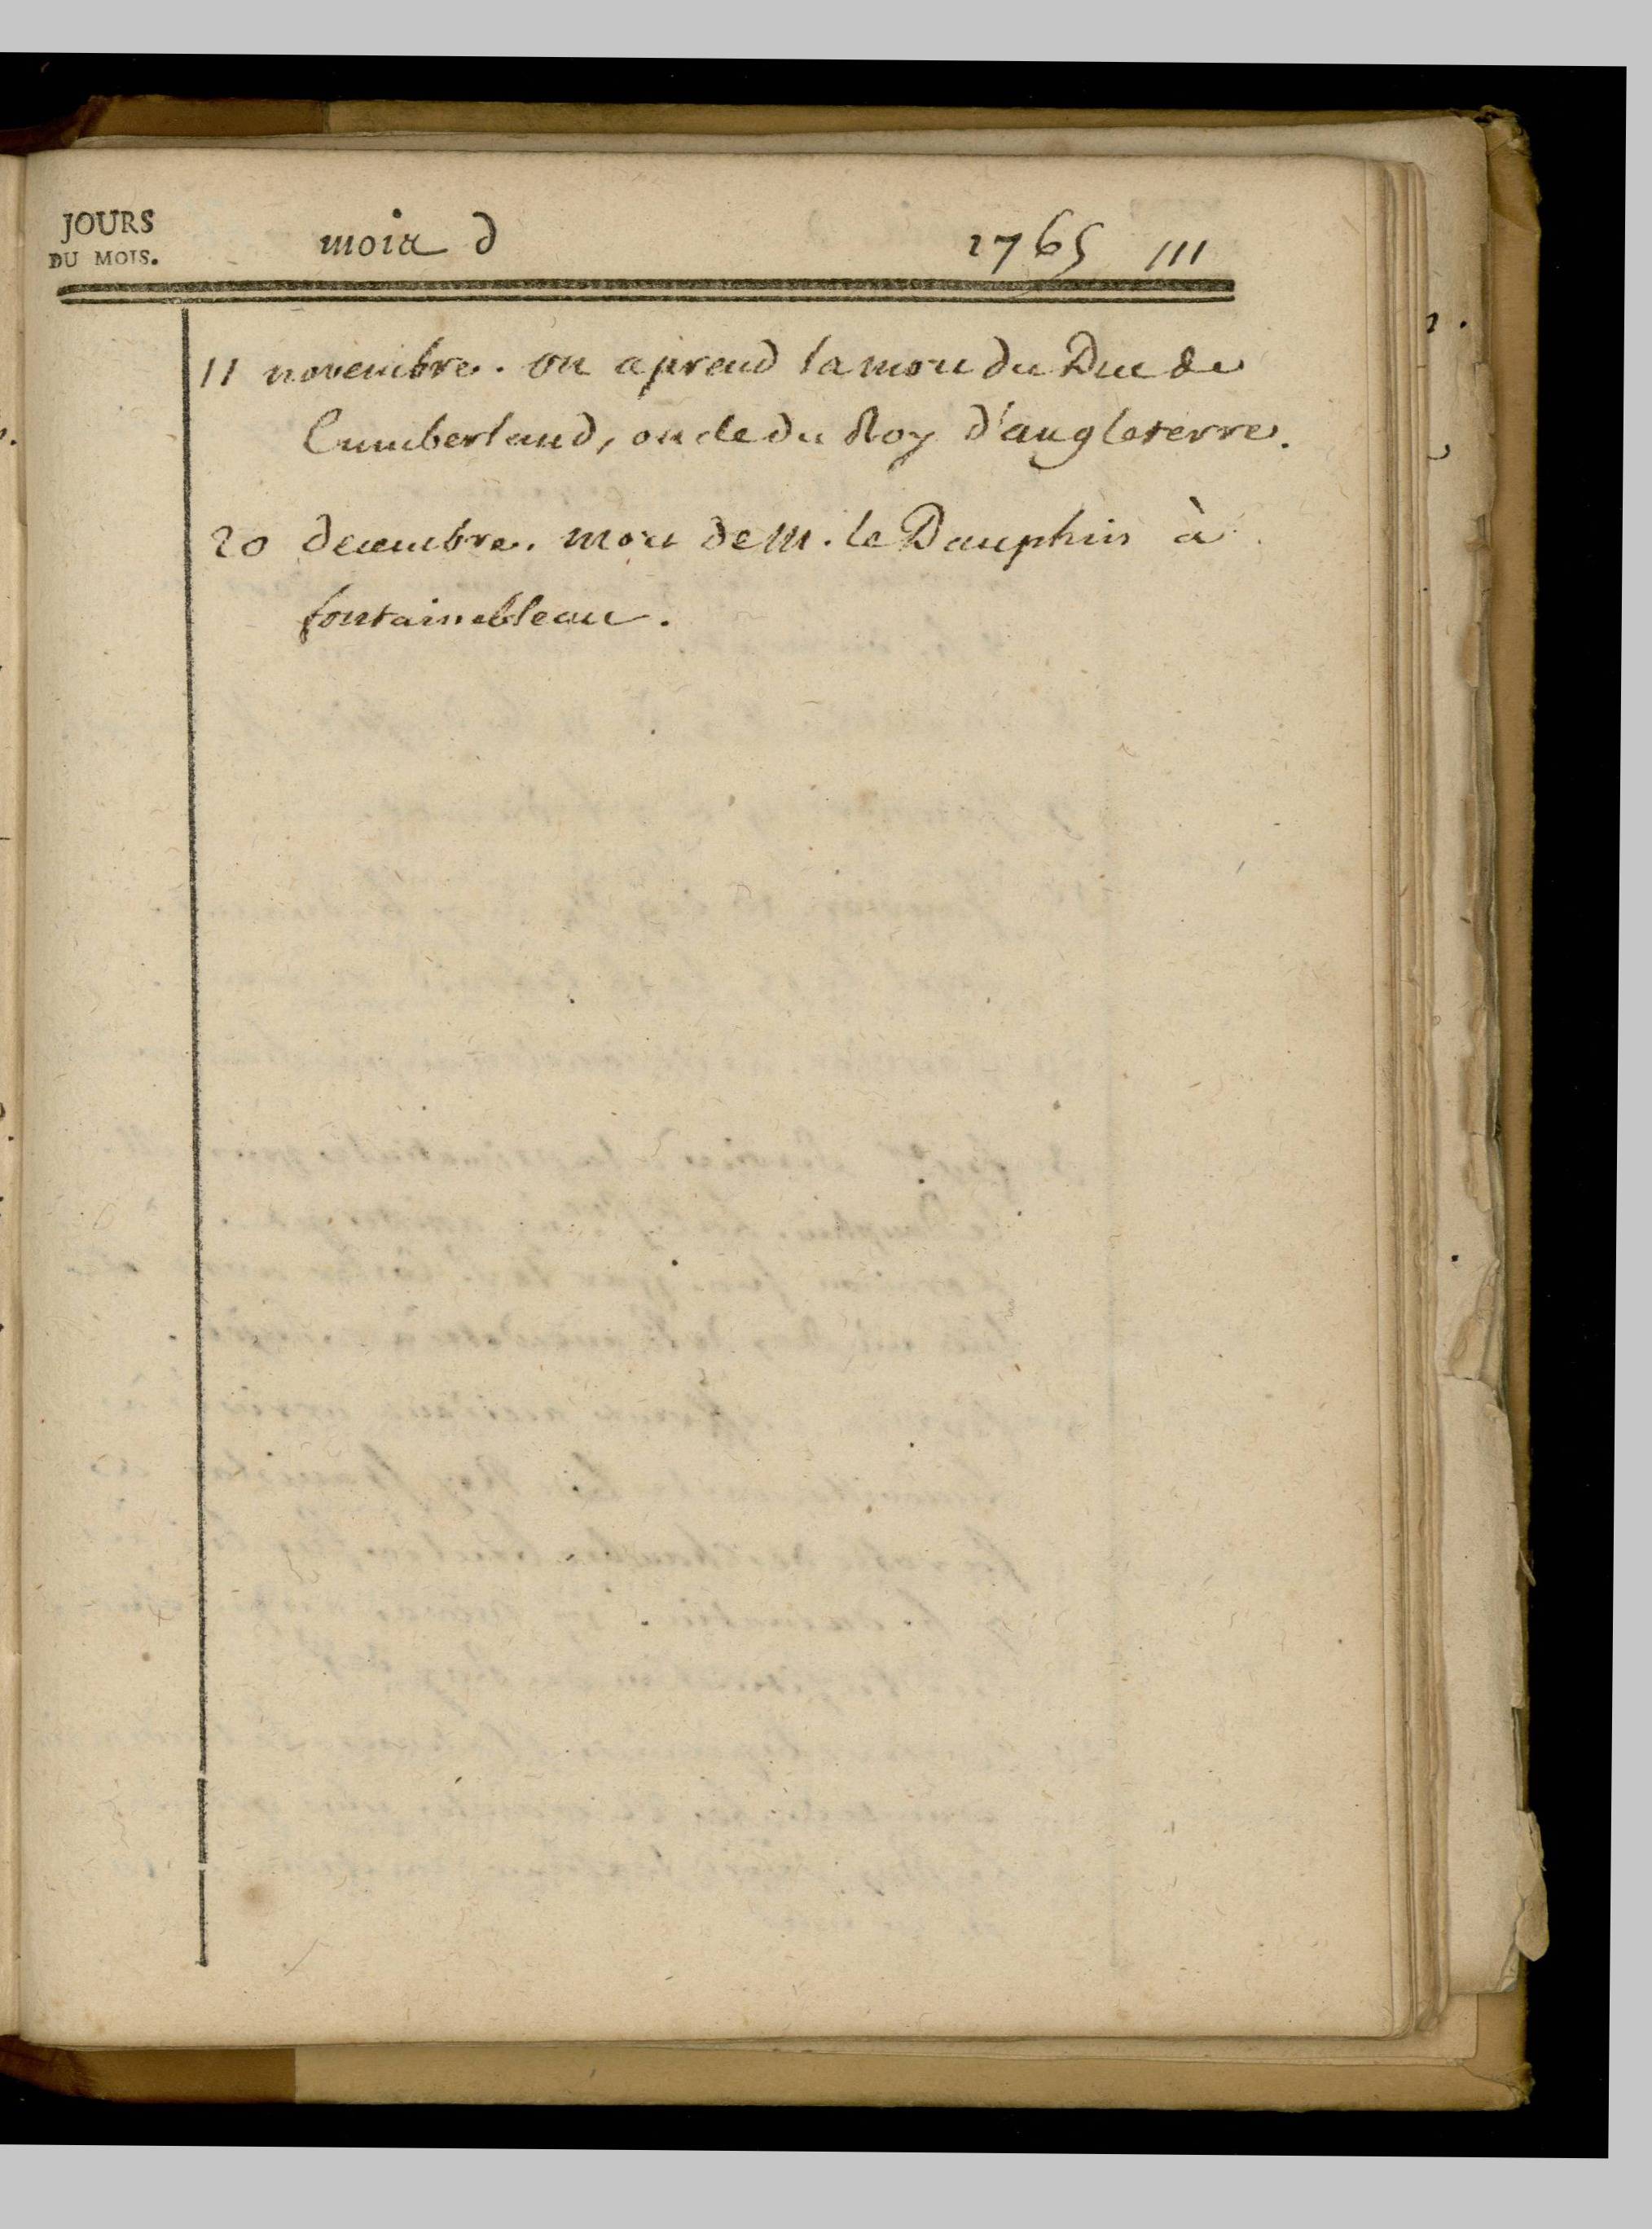 JOURS
DU MOIS.
mois d 1765 111
11 novembre. on aprend la mort du Duc de
Cumberland, oncle du Roy d'angleterre.
20 decembre. mort de M. le Dauphin à
fontainebleau.